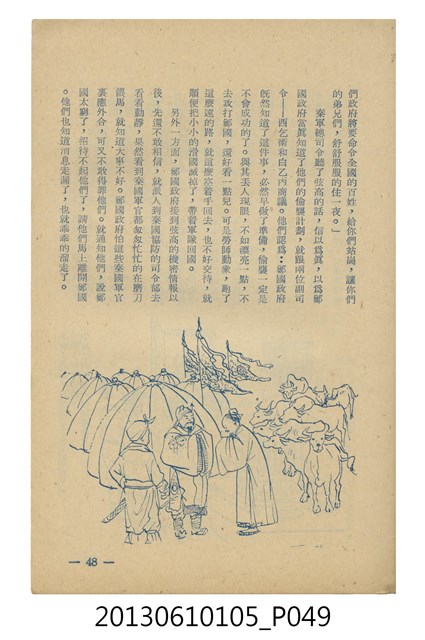 們政府將要命令全國的百姓，給你們站崗，讓你們
的弟兄們，舒舒服服的住一夜。」
秦軍總司令聽了弦高的話，信以爲眞，以爲鄭
國政府當眞知道了他們的偸襲計劃，就跟兩位副司
令——西乞術和白乙丙商議。他們認爲：鄭國政府
旣然知道了這件事，必然早做了準備，偸襲一定是
不會成功的了。與其丟人現眼，不如漂亮一點，不
去攻打鄭國，還好看一點兒。可是勞師動衆，跑了
這麼遠的路，就這麼空着手回去，也不好交待，就
順便把小小的滑國滅掉了，帶着軍隊回國。
另外一方面，鄭國政府接到弦高的機密情報以
後，先還不敢相信，就派人到秦國協防的司令部去
看看動靜，果然看到秦國軍官都匆匆忙忙的在磨刀
餵馬，就知道大事不好。鄭國政府怕這些秦國軍官
裏應外合，可又不敢得罪他們。就通知他們，說鄭
國太窮了，招待不起他們了，請他們馬上離開鄭國
。他們也知道消息走漏了，也就乖乖的溜走了。
— 48 —
20130610105_P049